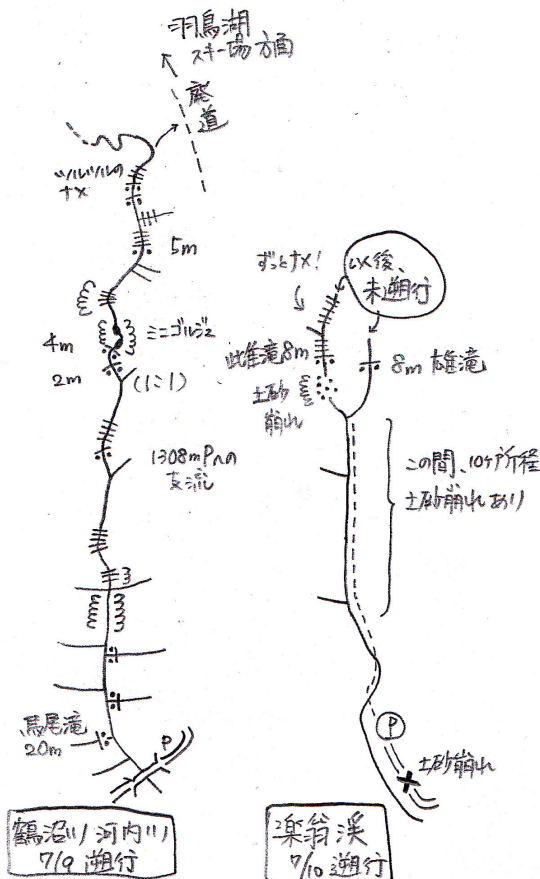 羽鳥湖
スキー場方面
廃道
ツルツルの
ナメ
5m
ミニゴルジュ
4m
2m
(1:1)
1308mPへの
支流
3
馬尾滝
20m
P
鶴沼川河内川
7/9 遡行
ずっとナメ!
以後、
未遡行
雌滝8m
8m 雄滝
土砂
崩れ
この間、10ヶ所程
土砂崩れあり
P
土砂崩れ
楽翁渓
7/10 遡行